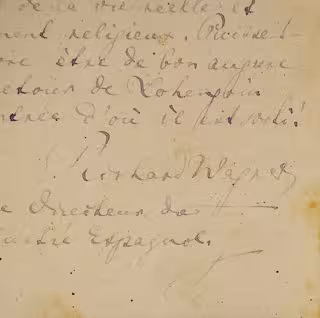 de la vie réelle et
ment religieux. Puisse-t
être de bon augure
retour de Lohengrin
d'où il est sorti!
Richard Wagner
e Directeur du
Espagnol.